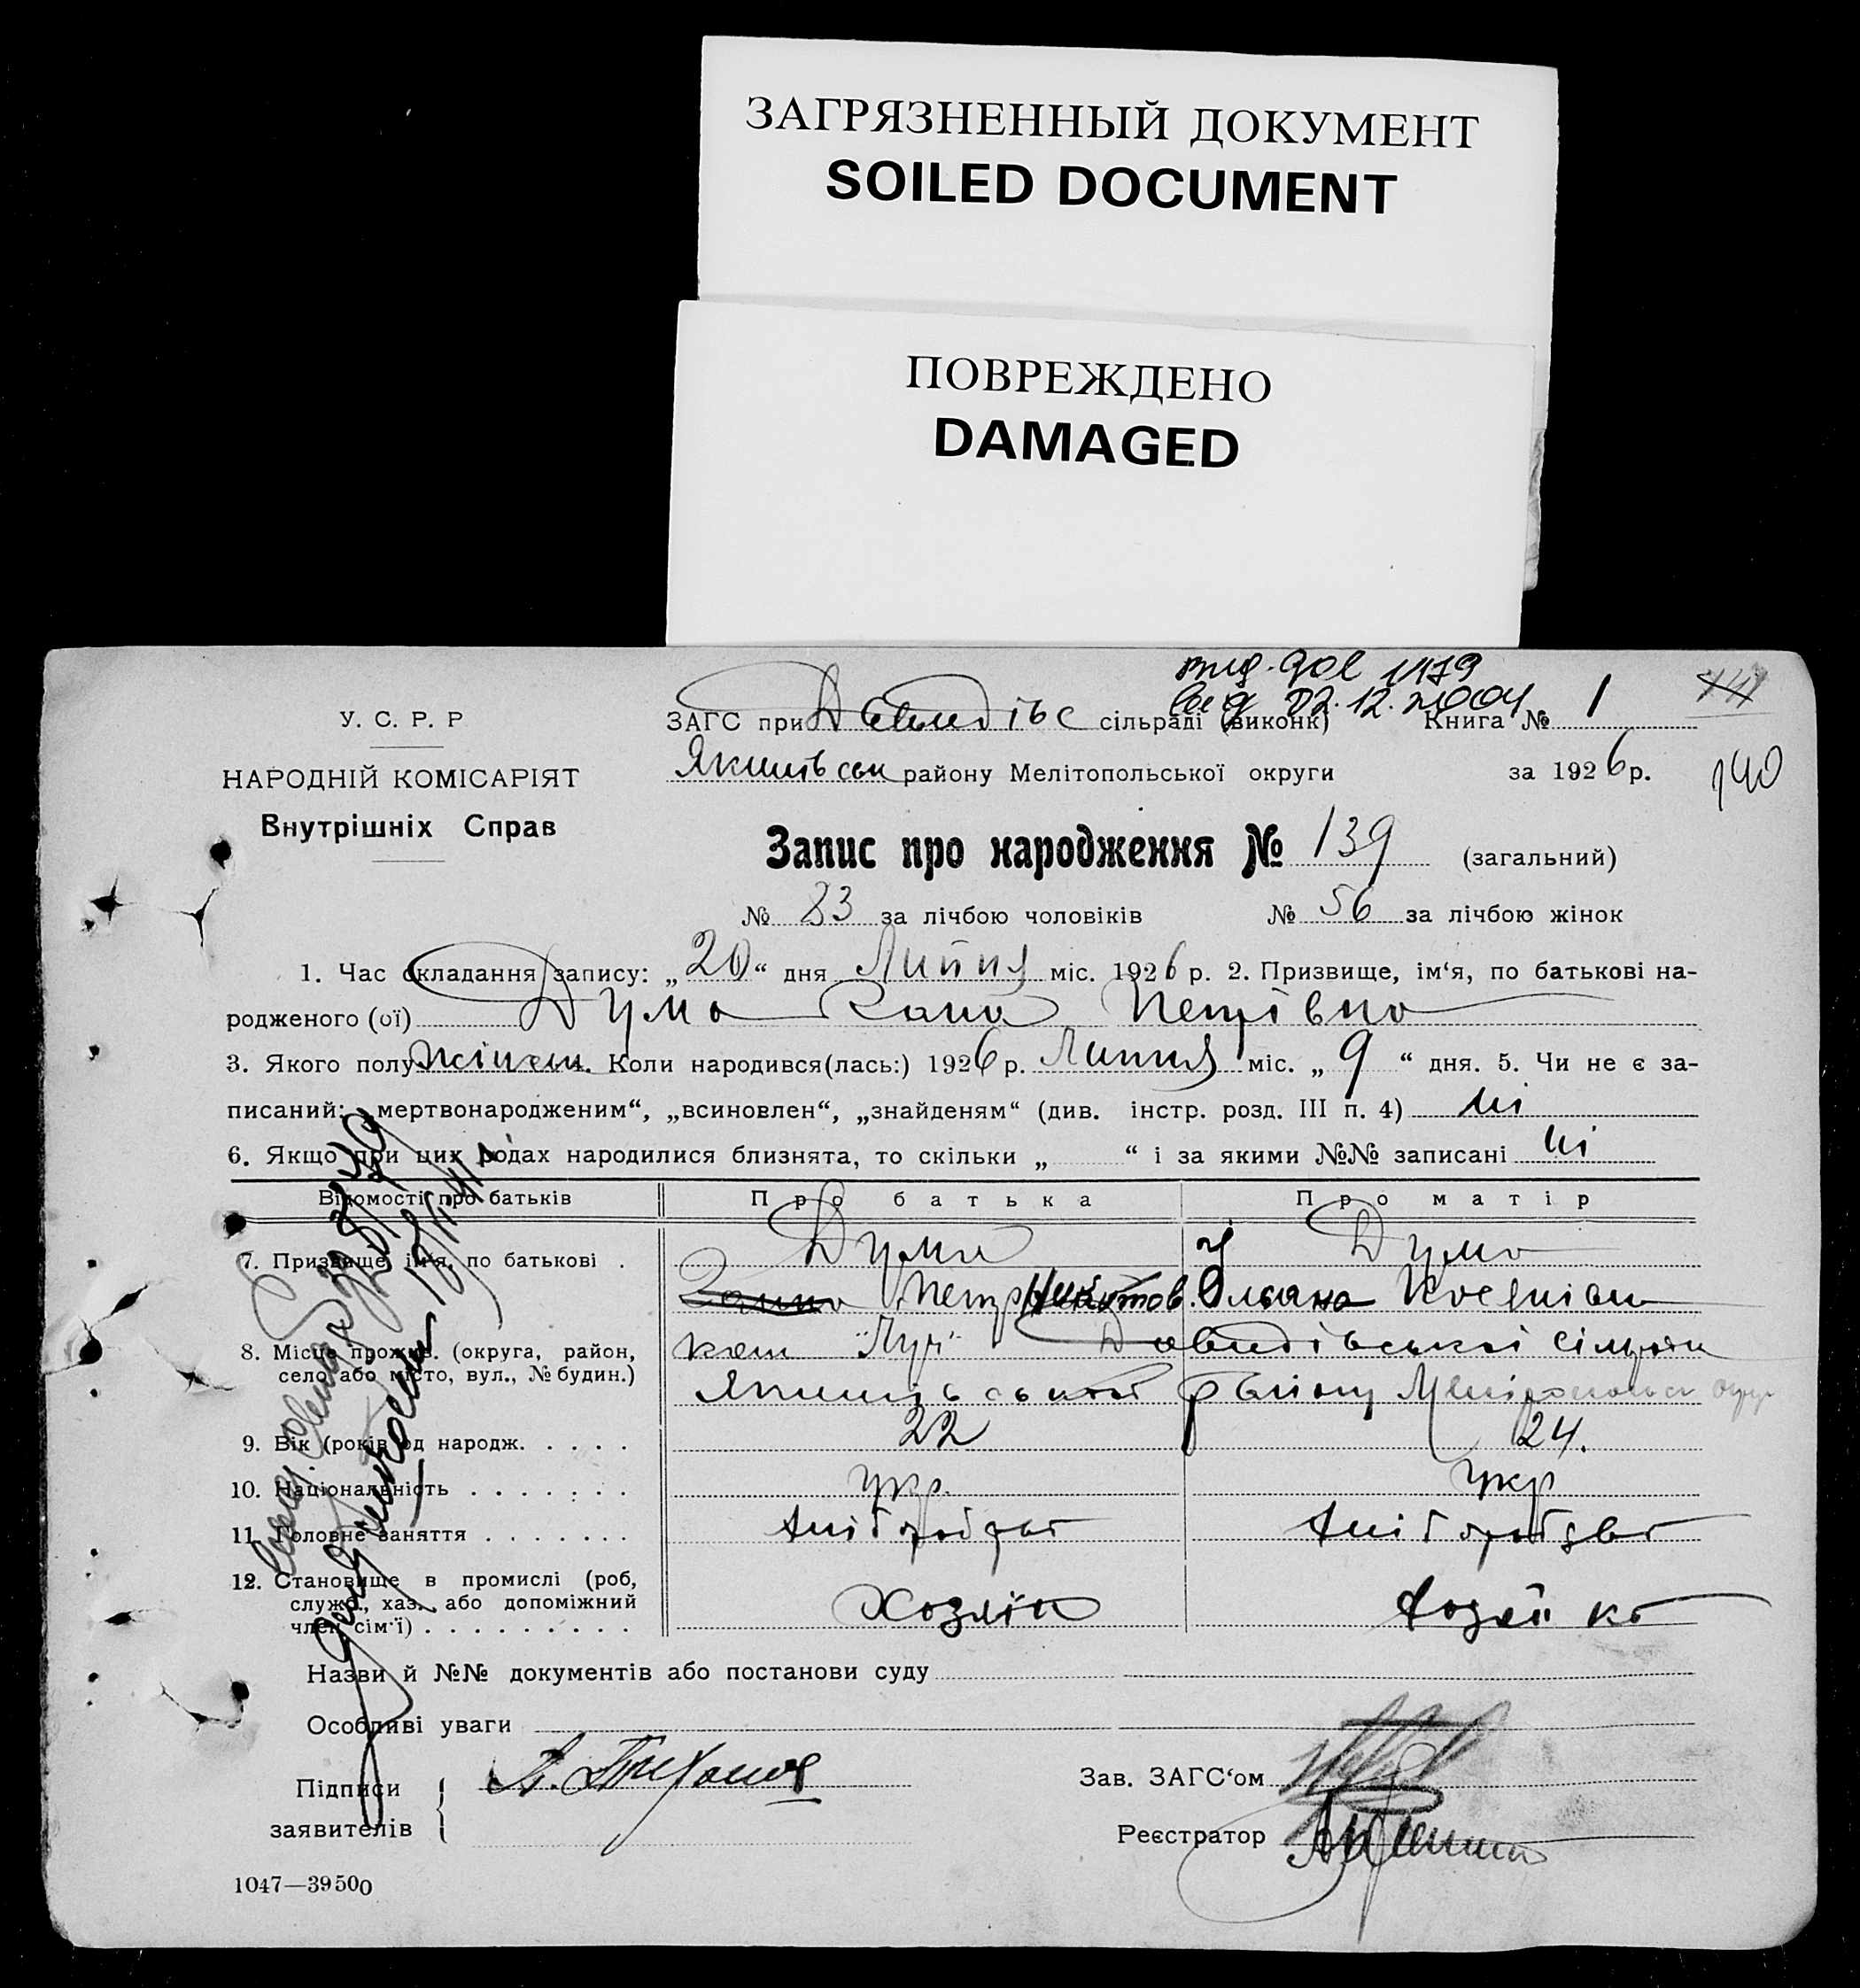 ЗАГРЯЗНЕННЫЙ ДОКУМЕНТ
SOILED DOCUMENT
ПОВРЕЖДЕНО
DAMAGED
1479
від 02.12.2004
У. С. Р. Р
ЗАГС при Давидівс сільраді (виконк) Книга № 1
НАРОДНІЙ КОМІСАРІЯТ
Якимівськ району Мелітопольської округи за 1926 р.
140
Внутрішніх Справ
Запис про народження № 139 (загальний)
№ 83 за лічбою чоловіків № 56 за лічбою жінок
1. Час складання запису: „20“ дня Липня міс. 1926 р. 2. Призвище, ім‘я, по батькові на-
родженого (ої) Дума Петрівна
3. Якого полу жіноч. 4. Коли народився(лась:) 1926 р. Липня міс. „ 9 “ дня. 5. Чи не є за-
писаний: „мертвонародженим“, „всиновлен“, „знайденям“ (див. інстр. розд. III п. 4) ні
6. Якщо при цих родах народилися близнята, то скільки „ “ і за якими №№ записані ні
Відомості про батьків Про батька Про матір
7. Призвище, ім‘я, по батькові . Дума Дума
Петро Уляна
8. Місце прожив. (округа, район, село або місто, вул., № будин.) "Луч" Давидівської сільради
Якимівського району
9. Вік (років од народж. . . . . 22 24.
10. Національність . . . . . . . укр. укр
11. Головне заняття . . . . . . . хліборобство хліборобство
12. Становище в промислі (роб, служб., хаз., або допоміжний член сім‘ї) . . . . . . . . . Хозяїн хозяйка
Назви й №№ документів або постанови суду
Особливі уваги
Підписи
заявителів
Зав. ЗАГС‘ом
Реєстратор
1047—39500